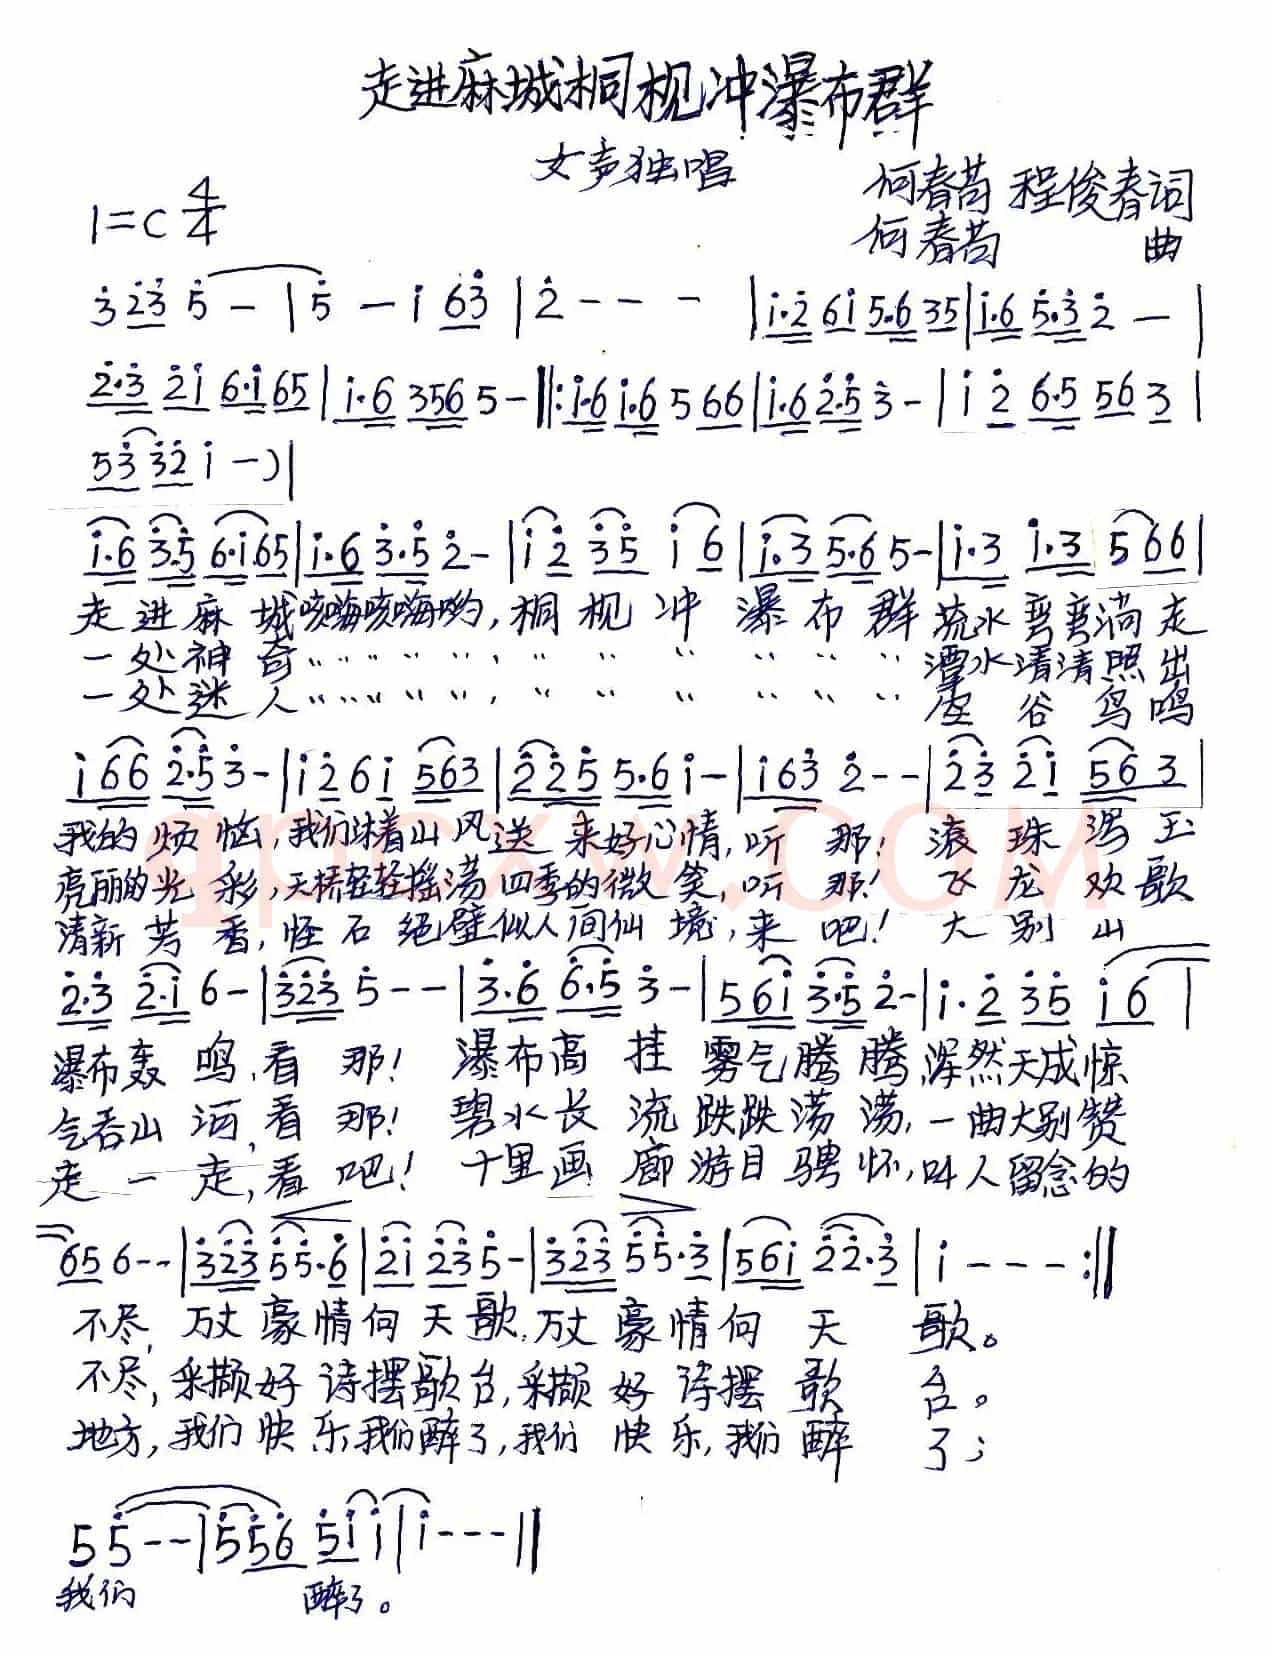 走进麻城桐枧冲瀑布群
女声独唱
何春苟 程俊春词
1=C 4/4
何春苟 曲
3 23 5 - | 5 - i 63 | 2 - - - | i·2 6i 5·6 35 | i·6 5·3 2 - |
2·3 2i 6·i 65 | i·6 356 5 - ‖: i·6 i·6 5 66 | i·6 2·5 3 - | i 2 6·5 56 3 |
53 32 i - ) |
i·6 3·5 6·i 65 | i·6 3·5 2 - | i 2 35 i 6 | i·3 5·6 5 - | i·3 i·3 5 66 |
走进麻城咳嗨咳嗨哟,桐枧冲瀑布群流水弯弯淌走
一处神奇〃〃〃〃〃,〃〃〃〃〃〃潭水清清照出
一处迷人〃〃〃〃〃,〃〃〃〃〃〃空谷鸟鸣
i66 2·5 3 - | i2 6i 563 | 225 5·6 i - | i63 2 - - | 23 2i 56 3 |
我的烦恼,我们沐着山风送来好心情,听那!滚珠泻玉
亮丽的光彩,天桥轻轻摇荡四季的微笑,听那!飞龙欢歌
清新芳香,怪石绝壁似人间仙境,来吧!大别山
2·3 2·i 6 - | 323 5 - - | 3·6 6·5 3 - | 56i 3·5 2 - | i·2 35 i6 |
瀑布轰鸣,看那!瀑布高挂雾气腾腾,浑然天成惊
气吞山河,看那!碧水长流跌跌荡荡,一曲大别赞
走一走,看吧!十里画廊游目骋怀,叫人留念的
65 6 - - | 323 55·6 | 2i 23 5 - | 323 55·3 | 56i 22·3 | i - - - :‖
不尽,万丈豪情向天歌,万丈豪情向天歌。
不尽,采撷好诗摆歌台,采撷好诗摆歌台。
地方,我们快乐我们醉了,我们快乐,我们醉了;
5 5 - - | 5 56 5i i | i - - - ‖
我们醉了。
qpcxw.com